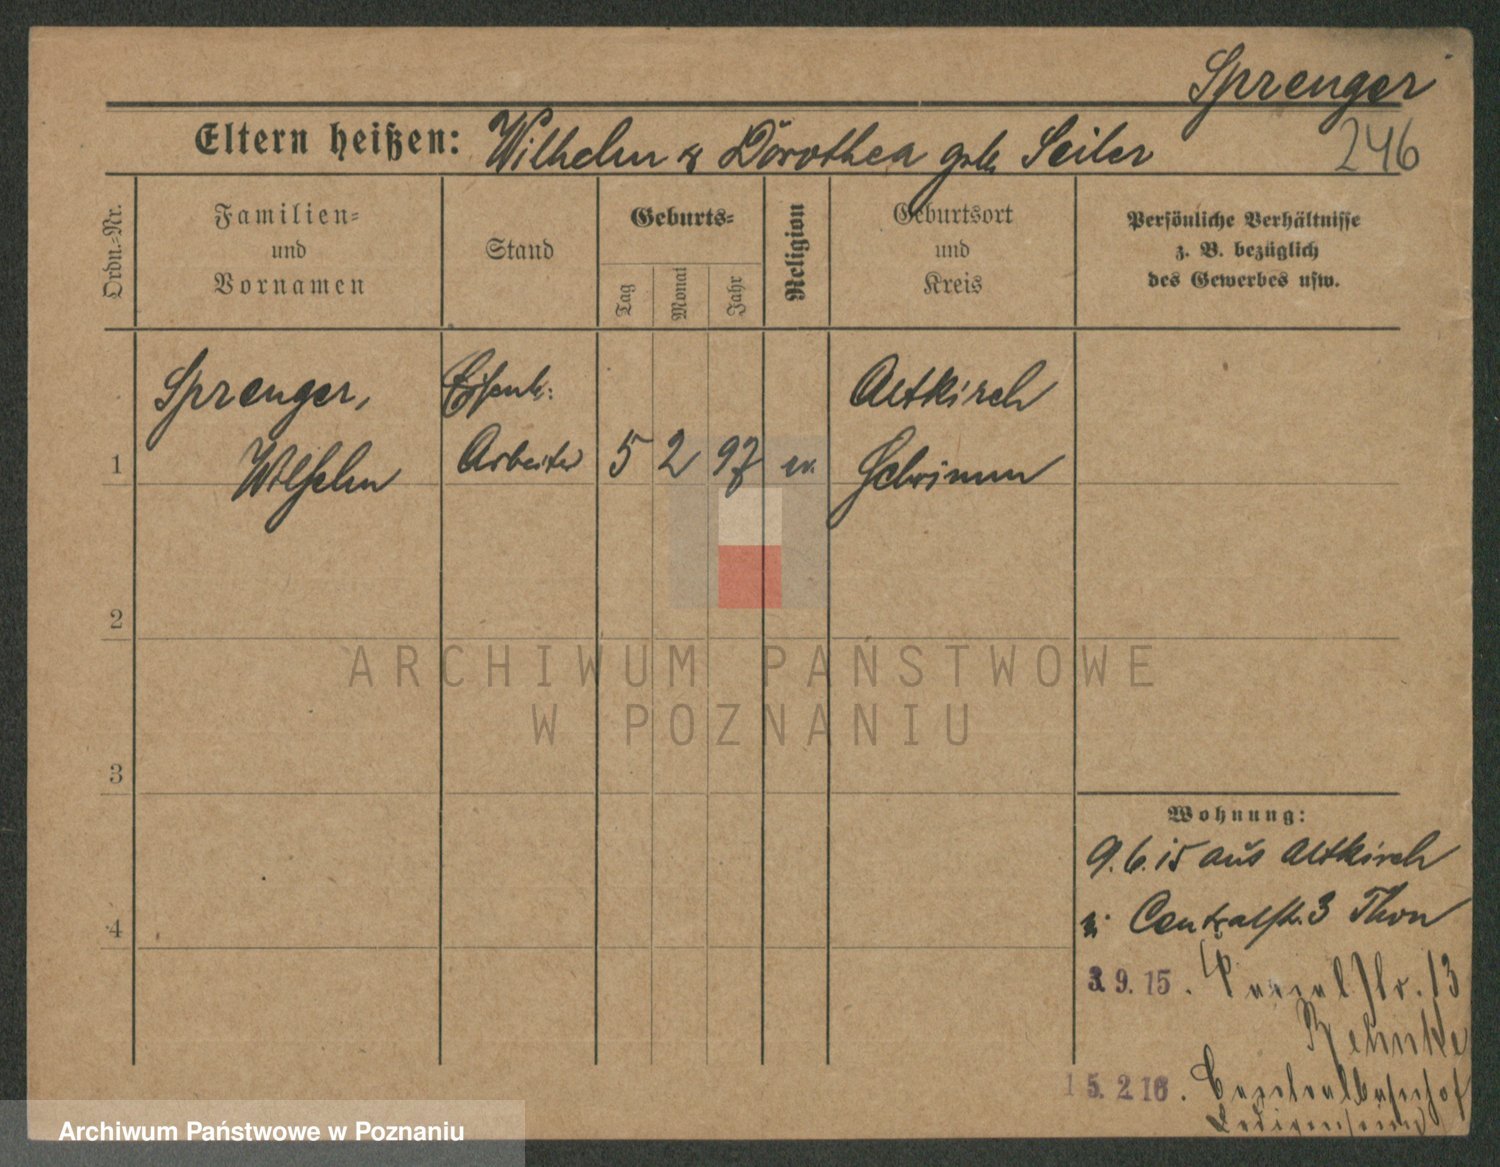 Sprenger
246
Eltern heißen: Wilhelm & Dorothea geb. Seiler
Ordn.-Nr.
Familien-
und
Vornamen
Stand
Geburts-
Tag
Monat
Jahr
Religion
Geburtsort
und
Kreis
Persönliche Verhältnisse
z. B. bezüglich
des Gewerbes usw.
Sprenger, Eisenb: Altkirch
1 Wilhelm Arbeiter 5 2 97 ev. Schrimm
2
ARCHIWUM PAŃSTWOWE
W POZNANIU
3
Wohnung:
9.6.15 aus Altkirch
4
Centralstr. 3 Thon
3.9.15. 13
Behnke
15.2.16. Centralbahnhof
Archiwum Państwowe w Poznaniu